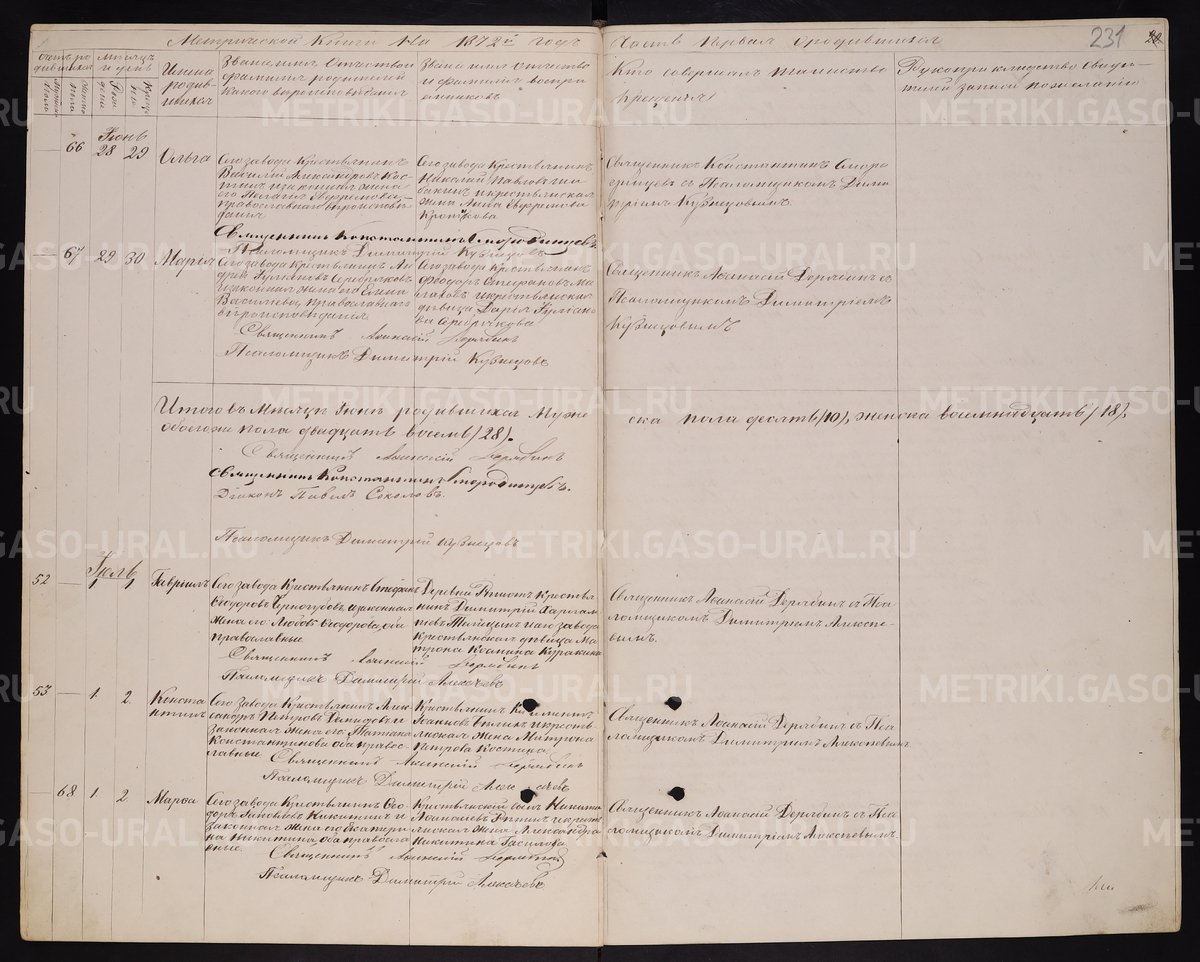 Метрической Книги На 1872й годъ
Часть Первая Ородившихся
231
Счетъ ро
дившихся
Мужеска
пола
Женска
пола
Месяцъ
и день
Рож
денія
Креще
нія
Имена
родив-
шихся
Званіе имя Отчество и
фамилія родителей
Какого вѣроисповѣданія
Званіе имя Отчество
и фамилія воспрі
емниковъ
Кто совершалъ таинство
Крещенія
Рукоприкладство Свидѣ-
телей записи пожеланію
66
Іюнь
28 29
Ольга
Сего завода Крестьянинъ
Василій Александровъ Кос
тинъ и законная жена
его Пелагія Евфремова,
православнаго вѣроисповѣ
данія
Сего завода Крестьянинъ
Николай Павловъ
и крестьянская
жена Анна Евфремова
Священникъ Константинъ Сморо
динцевъ съ Псаломщикомъ Дими
тріемъ Кузнецовымъ.
Священникъ Константинъ Смородинцевъ.
Псаломщикъ Димитрій Кузнецовъ
67
29 30
Марія
Сего завода Крестьянинъ Ан
дрей Серебряковъ
и законная жена его Елена
Васильева, православнаго
вѣроисповѣданія.
Сего завода Крестьянинъ
Феодоръ Стефановъ Ма
лаховъ и крестьянская
дѣвица Дарія
ва Серебрякова
Священникъ Аѳанасій Дерябинъ съ
Псаломщикомъ Димитріемъ
Кузнецовымъ
Священникъ Аѳанасій Дерябинъ
Псаломщикъ Димитрій Кузнецовъ
Итого въ Мѣсяцѣ Іюнѣ родившихся Муже
ска пола десять (10), женска восемнадцать (18),
обоего же пола двадцать восемь (28).
Священникъ Аѳанасій Дерябинъ
Священникъ Константинъ Смородинцевъ.
Діаконъ Павелъ Соколовъ.
Псаломщикъ Димитрій Кузнецовъ
Іюль
52
1 1
Гавріилъ
Сего завода Крестьянинъ Стефанъ
Сидоровъ Черногубовъ, и законная
жена его Любовь Ѳеодорова, оба
православные
Деревни Крестья
нинъ Димитрій Харлам
піевъ и сего завода
крестьянская дѣвица Ма
трона Куракина
Священникъ Аѳанасій Дерябинъ съ Пса
ломщикомъ Димитріемъ Алексѣе-
вымъ.
Священникъ Аѳанасій Дерябинъ
Псаломщикъ Димитрій Алексѣевъ
53
1. 2.
Конста
нтинъ
Сего завода Крестьянинъ Алек
сандръ Петровъ Демидовъ и
законная жена его Татіана
Константинова оба правос
лавные
Крестьянинъ Климентъ
Іоанновъ и кресть
янская жена Матрона
Петрова Костина.
Священникъ Аѳанасій Дерябинъ съ Пса
ломщикомъ Димитріемъ Алексѣевымъ
Священникъ Аѳанасій Дерябинъ
Псаломщикъ Димитрій Алексѣевъ
68
1. 2.
Марѳа
Сего завода Крестьянинъ Ѳео
доръ Яковлевъ Никитинъ и
законная жена его Екатери
на Никитина, оба правосла
вные.
Крестьянскій сынъ Никита
и кресть
янская жена Александра
Никитина
Священникъ Аѳанасій Дерябинъ съ Пса
ломщикомъ Димитріемъ Алексѣевымъ.
Священникъ Аѳанасій Дерябинъ
Псаломщикъ Димитрій Алексѣевъ
METRIKI.GASO-URAL.RU